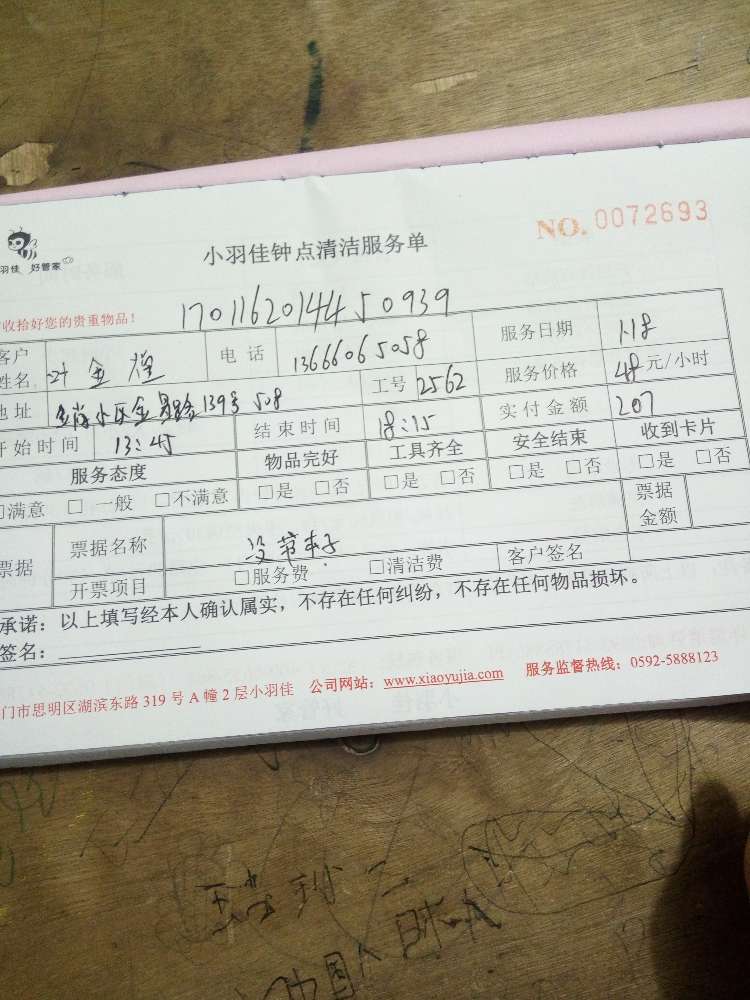 NO. 0072693
小羽佳钟点清洁服务单
羽佳 好管家
收拾好您的贵重物品！
17011620144450939
客户姓名 叶金煌 电话 13666065058 服务日期 1.18
地址 金路139号508 工号 2562 服务价格 48元/小时
开始时间 13:45 结束时间 18:15 实付金额 207
服务态度 物品完好 工具齐全 安全结束 收到卡片
□满意 □一般 □不满意 □是 □否 □是 □否 □是 □否 □是 □否
票据 票据名称 没带本子 票据金额
开票项目 □服务费 □清洁费 客户签名
承诺：以上填写经本人确认属实，不存在任何纠纷，不存在任何物品损坏。
签名：
门市思明区湖滨东路319号A幢2层小羽佳 公司网站：www.xiaoyujia.com 服务监督热线：0592-5888123
中国人